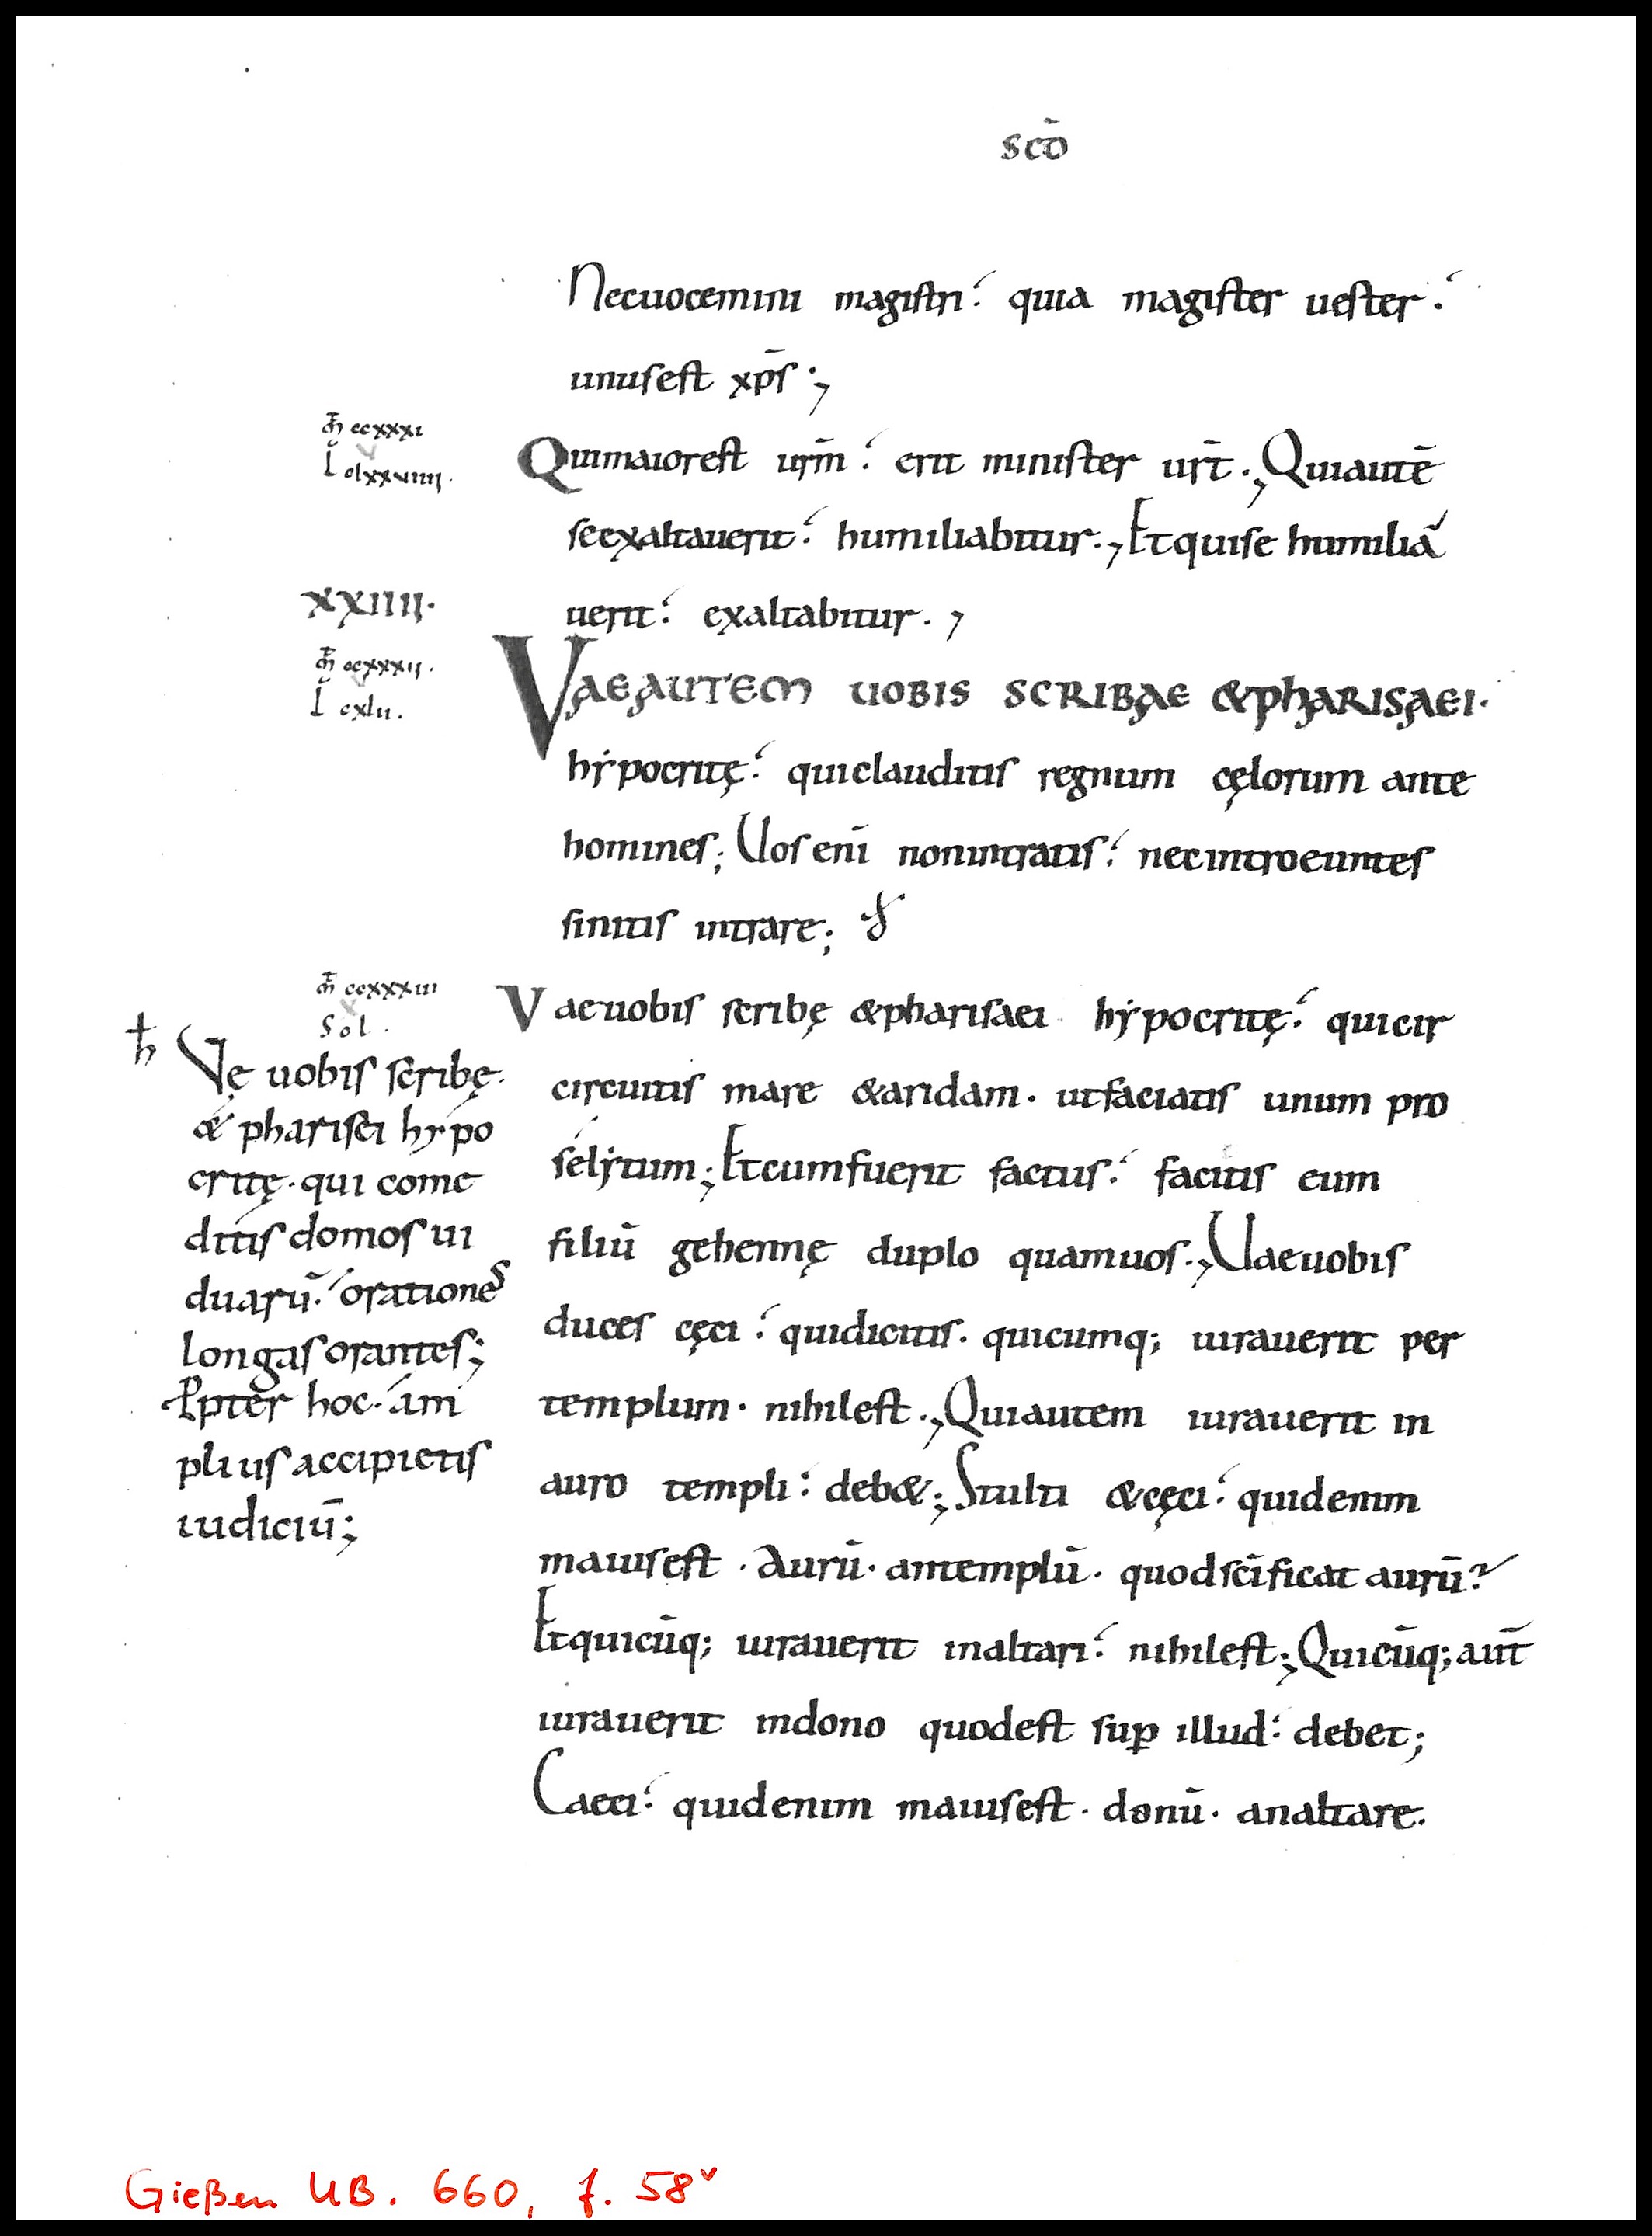 scd̄
Necuocemini magistri. quia magister uester.
unusest xp̄s.,
m̄ ccxxxi
L clxxviiii.
Quimaiorest ur̄m. erit minister ur̄t., Quiautē
seexaltauerit. humiliabitur., Etquise humilia
xxiiii.
uerit. exaltabitur.,
m̄ ccxxxii.
L cxlii.
VAEAUTEM UOBIS SCRIBAE &PHARISAEI.
hẏpocritę. quiclauditis regnum cęlorum ante
homines; Uos enī nonintratis. necintroeuntes
sinitis intrare;
m̄ ccxxxiii
Sol.
Vaeuobis scribę &pharisaei hẏpocritę. quicir
circuitis mare &aridam. utfaciatis unum pro
selẏtum; Etcumfuerit factus. facitis eum
filiū gehennę duplo quamuos., Uaeuobis
duces cęci. quidicitis. quicumq; iurauerit per
templum. nihilest., Quiautem iurauerit in
auro templi. deb&; Stulti &cęci. quidenim
maiusest. Aurū. antemplū. quodscīficat aurū?
Etquicūq; iurauerit inaltari. nihilest; Quicūq; aut̄
iurauerit indono quodest suꝑ illud. debet;
Caeci. quidenim maiusest. donū. analtare.
ħ Vę uobis scribę.
& pharisei hẏpo
critę. qui come
ditis domos ui
duarū. orationes
longas orantes;
Ppter hoc. am
plius accipietis
iudiciū;
Gießen UB. 660, f. 58v